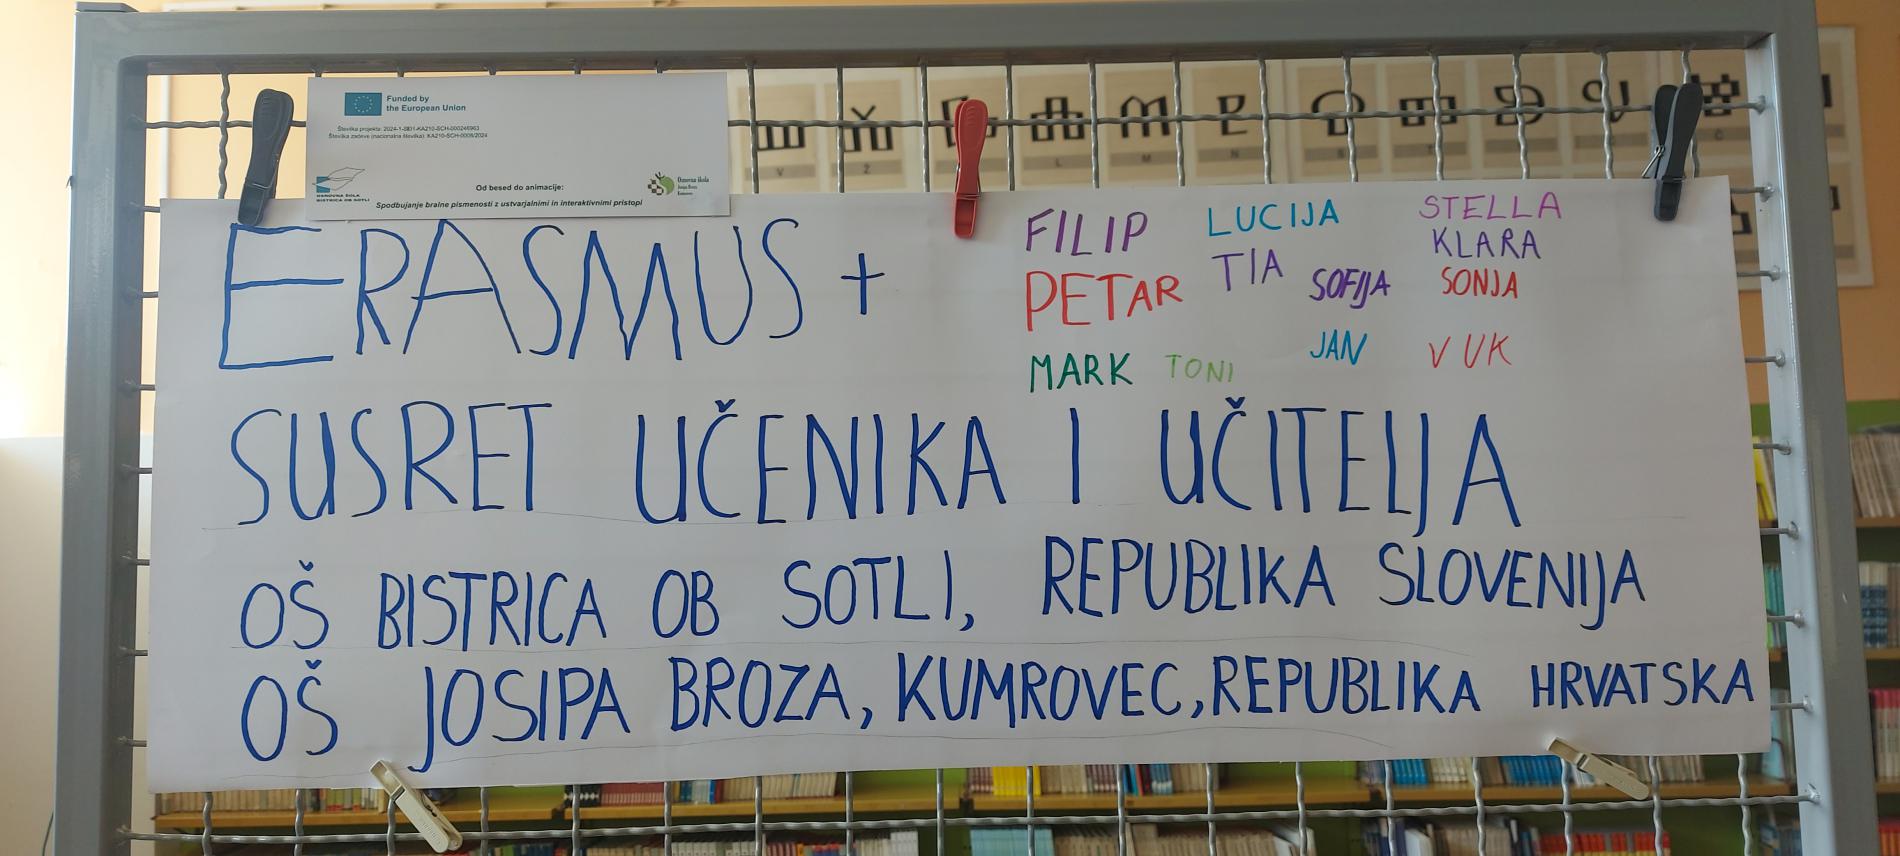 Funded by
the European Union
Številka projekta: 2024-1-SI01-KA210-SCH-000246963
Številka zadeve (nacionalna številka): KA210-SCH-0008/2024
OSNOVNA ŠOLA
BISTRICA OB SOTLI
Osnovna škola
Josipa Broza
Kumrovec
Od besed do animacije:
Spodbujanje bralne pismenosti z ustvarjalnimi in interaktivnimi pristopi
ERASMUS +
FILIP LUCIJA STELLA
KLARA
PETAR TIA SOFIJA SONJA
MARK TONI JAN VUK
SUSRET UČENIKA I UČITELJA
OŠ BISTRICA OB SOTLI, REPUBLIKA SLOVENIJA
OŠ JOSIPA BROZA, KUMROVEC, REPUBLIKA HRVATSKA
V Ž L M N